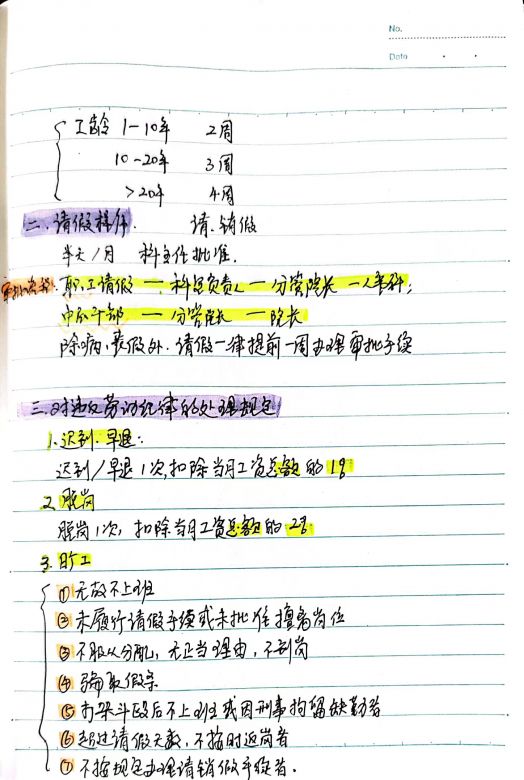 No.
Date
工龄 1-10年 2周
10-20年 3周
>20年 4周
二、请假条件. 请、销假
半天/月 科主任批准.
审批流程: 职工请假 — 科室负责人 — 分管院长 — 人事科;
中层干部 — 分管院长 — 院长
除病、丧假外. 请假一律提前一周办理审批手续
三、对违反劳动纪律的处理规定
1、迟到. 早退:
迟到/早退1次,扣除当月工资总额的1%
2、脱岗
脱岗1次, 扣除当月工资总额的2%
3、旷工
①无故不上班
②未履行请假手续或未批准擅离岗位
③不服从分配, 无正当理由, 不到岗
④骗取假条
⑤打架斗殴后不上班或因刑事拘留缺勤者
⑥超过请假天数, 不按时返岗者
⑦不按规定办理请销假手续者.